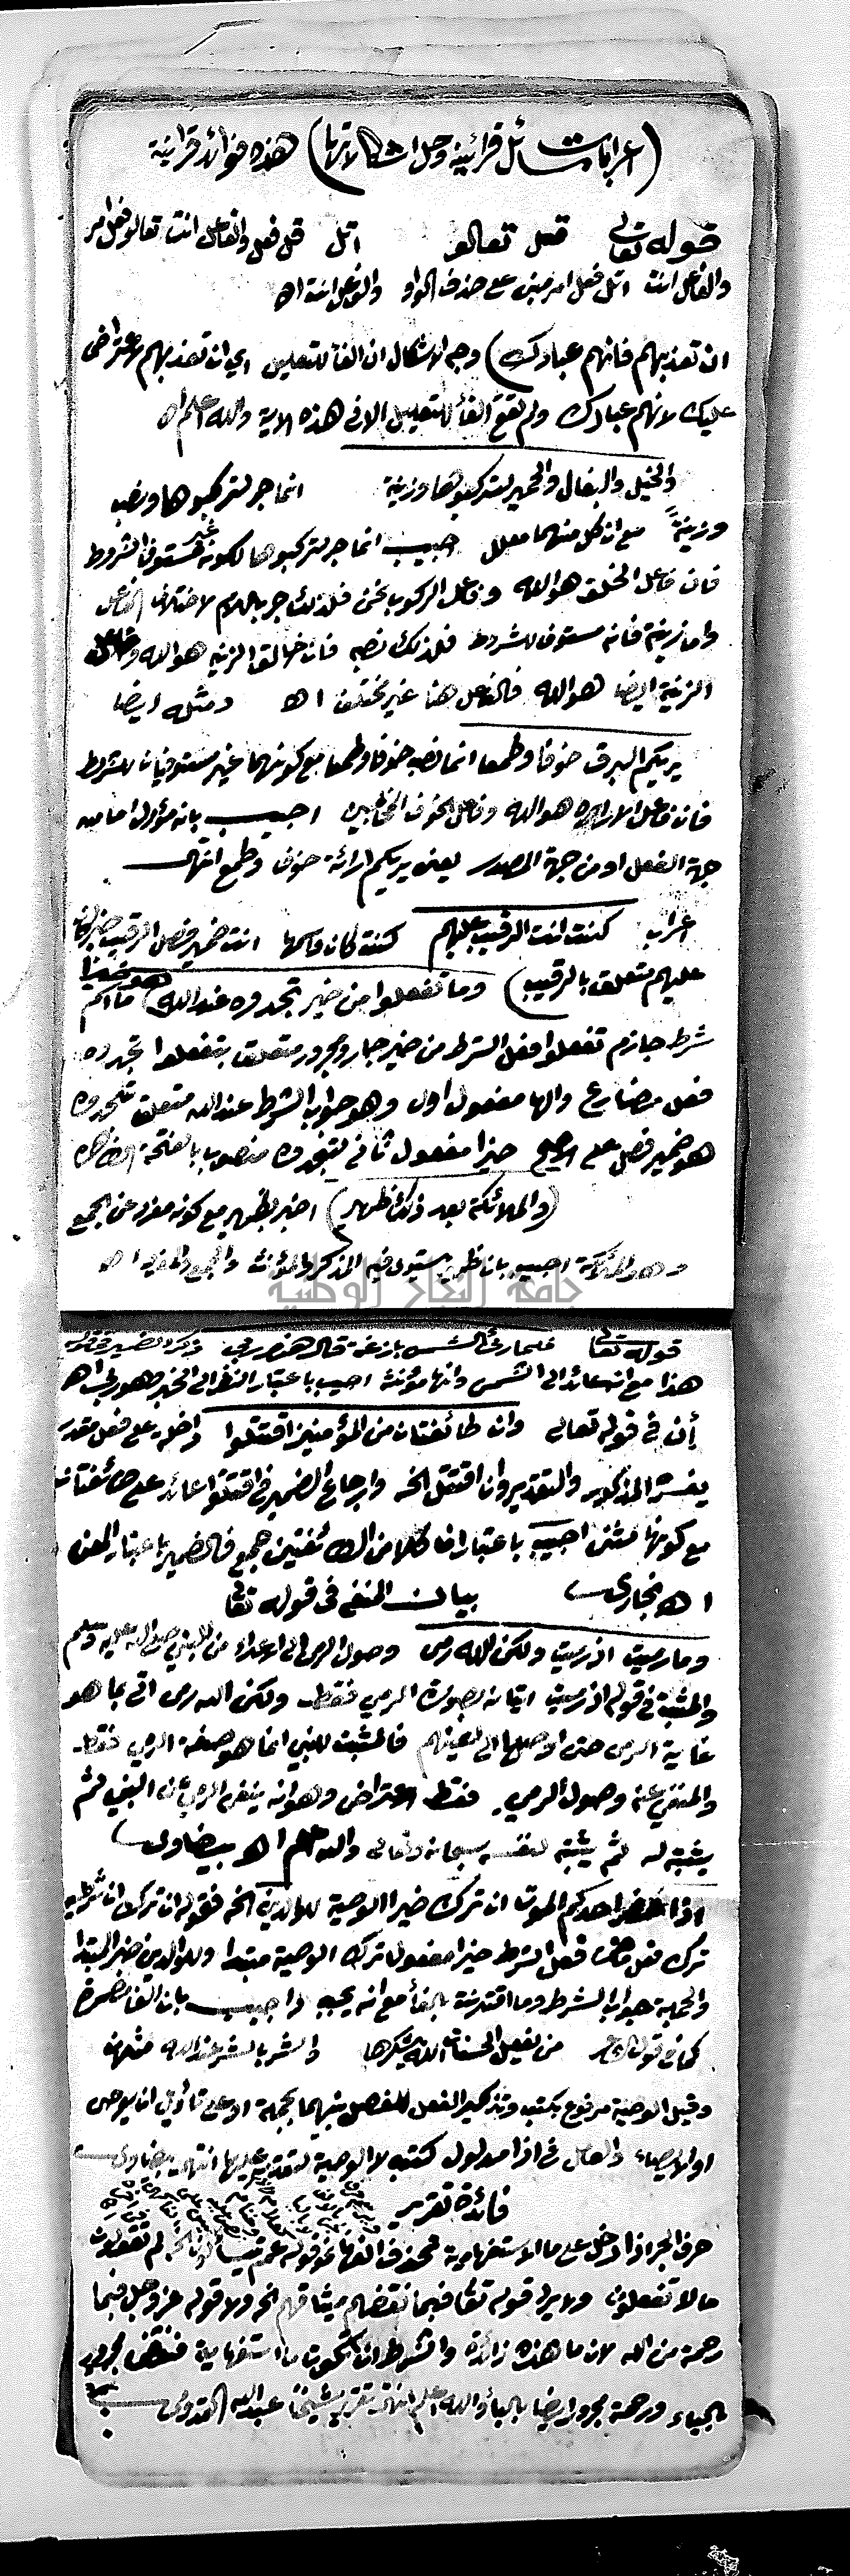 (اعرابات مسائل قرائنية وحل اشكالاتها) هذه فوائد قرانية
قوله تعالى قل تعالو اتل قل فعل والفاعل انت تعالو فعل امر
والفاعل انت اتل فعل امر مبني على حذف الواو والفاعل انت اه
ان تعذبهم فانهم عبادك) وجه الاشكال ان الفأ للتعليل اي ان تعذبهم لا اعتراض
عليك لانهم عبادك ولم تقع الفأ للتعليل الا في هذه الاية والله اعلم اه
والخيل والبغال والحمير لتركبوها وزينة انما جر لتركبوها ونصب
وزينةً مع ان كل منهما معلل اجيب انما جر لتركبوها لكونه غير مستوف الشروط
فان فاعل الخلق هو الله وفاعل الركوب نحن فلذلك جر باللام لاختلاف الفاعل
واما زينة فانه مستوف للشروط فلذلك نصبه فان خالق الزينه هو الله وفاعل
الزينة ايضا هو الله فالفاعل هنا غير مختلف اه ومثله ايضا
يريكم البرق خوفا وطمعا انما نصب خوفا وطمعا مع كونهما غير مستوفيان للشروط
فان فاعل الاراة هو الله وفاعل الخوف المخاطبين اجيب بانه مؤول اما من
جهة الفعل او من جهة المصدر يعني يريكم ارائة خوف وطمع انتهى
اعراب كنت انت الرقيب عليهم كنت كان واسمها انت ضمير فصل الرقيب خبر كان
عليهم متعلق بالرقيب) وما تفعلوا من خير تجدوه عند الله هو خيرا) ما اسم
شرط جازم تفعلوا فعل الشرط من خير جار ومجرور متعلق بتفعلوا تجدوه
فعل مضارع والها مفعول اول وهو جواب الشرط عند الله متعلق بتجدوه
هو ضمير فصل على الاصح خيرا مفعول ثاني لتجدوه منصوب بالفتحة الظاهرة
(والملائكة بعد ذلك ظهير) اخبر بظهير مع كونه مفرد عن الجمع
وهو الملائكة اجيب بان ظهير يستوي فيه المذكر والمؤنث والجمع والمفرد اه
جامعة النجاح الوطنية
قوله تعالى فلما رئى الشمس بازغة قال هذا ربي ذكر الضمير في قوله
هذا مع انه عائد الى الشمس وانها مؤنثة اجيب باعتبار النظر الى الخبر وهو ربي اه
أن في قوله تعالى وان طائفتان من المؤمنين اقتتلوا داخلة على فعل مقدر
يفسره المذكور والتقدير وان اقتتل الخ وارجاع الضمير في اقتتلوا عائد على طائفتان
مع كونها مثنى اجيب باعتبار ان كلا من الطائفتين جمع فالضمير باعتبار المعنى
اه بيان المنفي في قوله تعالى
وما رميت اذ رميت ولكن الله رمى وصول الرمي الى الاعداء من النبي صلى الله عليه وسلم
والمثبت في قوله اذ رميت اتيانه بصورة الرمي فقط ولكن الله رمى اتى بما هو
غاية الرمى حتى اوصلها الى اعينهم فالمثبت للنبي انما هو صفة الرمي فقط
والمنفي عنه وصول الرمي فقط الاعتراض وهو انه ينفي الرمي عن النبي ثم
يثبته له ثم يثبته لنفسه سبحانه وتعالى والله اعلم اه بيضاوى
اذا حضر احدكم الموت ان ترك خيرا الوصية للوالدين الخ فقوله ان ترك ان شرطيه
ترك فعل ماض فعل الشرط خيرا مفعول ترك الوصية مبتدا وللوالدين خبر المبتدا
والجملة جواب الشرط وما اقترنت بالفأ مع انه يجب واجيب بان الفا مضمرة
كما في قول من يفعل الحسنات الله يشكرها والشر بالشر عند الله مثلان
وقيل الوصية مرفوع بكتب وتذكير الفعل للفصل بينهما بجملة او على تأويل ان يوصي
او الايصاء والعامل في اذا مدلول كتب لا الوصية لتقدمه عليها انتهى بيضاوى
فائدة تقرير
حرف الجر اذا دخل على ما الاستفهامية تحذف الفها نحو قوله عم يتسائلون الخ لم تقولون
ما لا تفعلون ولا يرد قوله تعالى فبما نقضهم ميثاقهم الخ ولا قوله عز وجل فبما
رحمة من الله لان ما هذه زائدة والشرط ان تكون ما استفهامية فنقض مجرور
بالباء ورحمة مجرور ايضا بالبأ والله اعلم انتهى تقرير شيخنا عبد الله القدومى